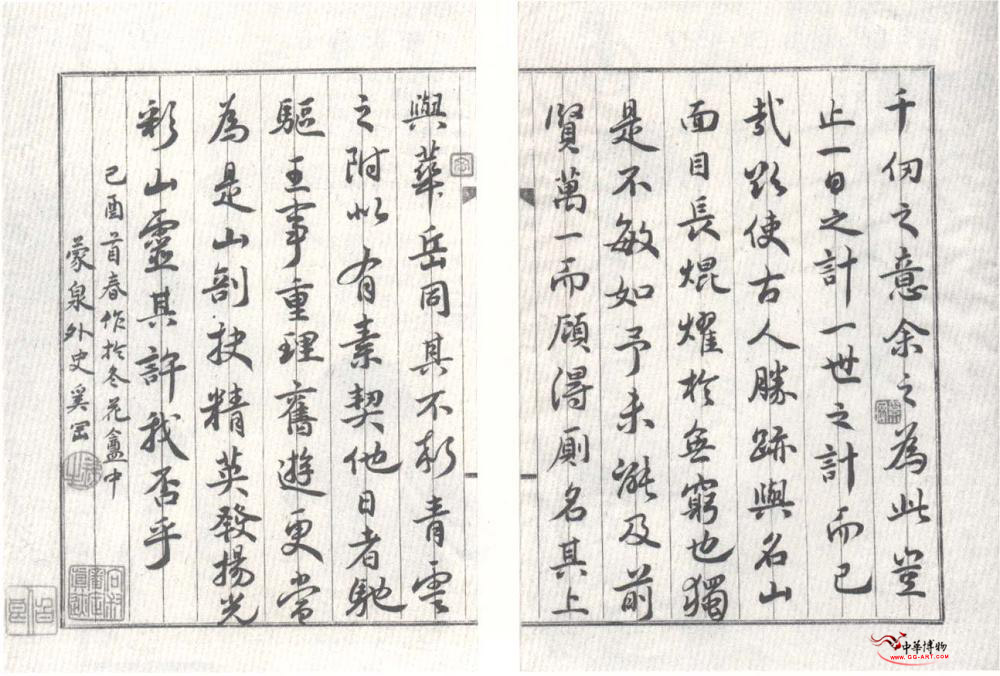 千仞之意余之為此豈
止一日之計一世之計而已
哉欲使古人勝跡與名山
面目長焜燿於無窮也獨
是不敏如予未能及前
賢萬一而顧得厠名其上
與華岳同其不朽青雲
之附似有素契他日者馳
驅王事重理舊遊更當
為是山剖抉精英發揚光
彩山靈其許我否乎
己酉首春作於冬花盦中
蒙泉外史奚岡
中華博物
www.gg-art.com